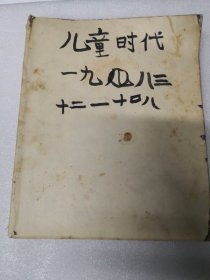 儿童时代
一九八八三
十二一十八